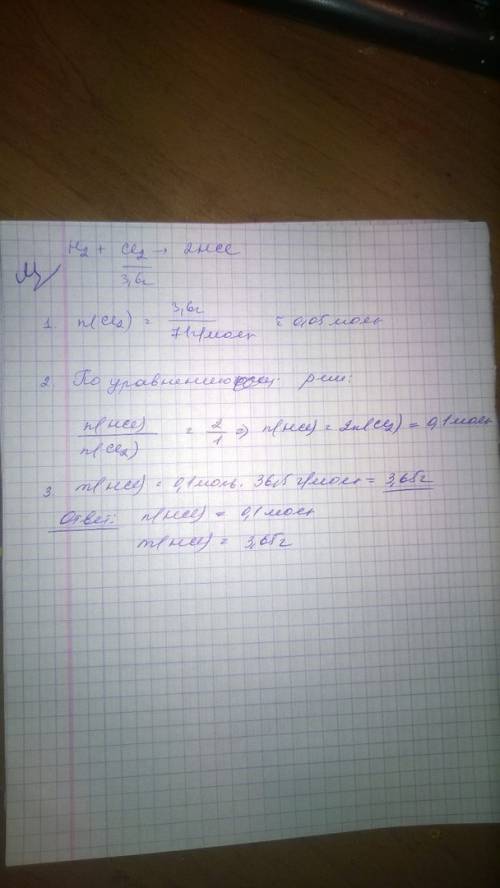 H₂ + Cl₂ → 2HCl
3,6г
1. n(Cl₂) = 3,6г / 71г/моль = 0,05 моль
2. По уравнению р-ции:
n(HCl) / n(Cl₂) = 2/1 ⇒ n(HCl) = 2n(Cl₂) = 0,1 моль
3. m(HCl) = 0,1 моль · 36,5 г/моль = 3,65г
Ответ: n(HCl) = 0,1 моль
m(HCl) = 3,65г